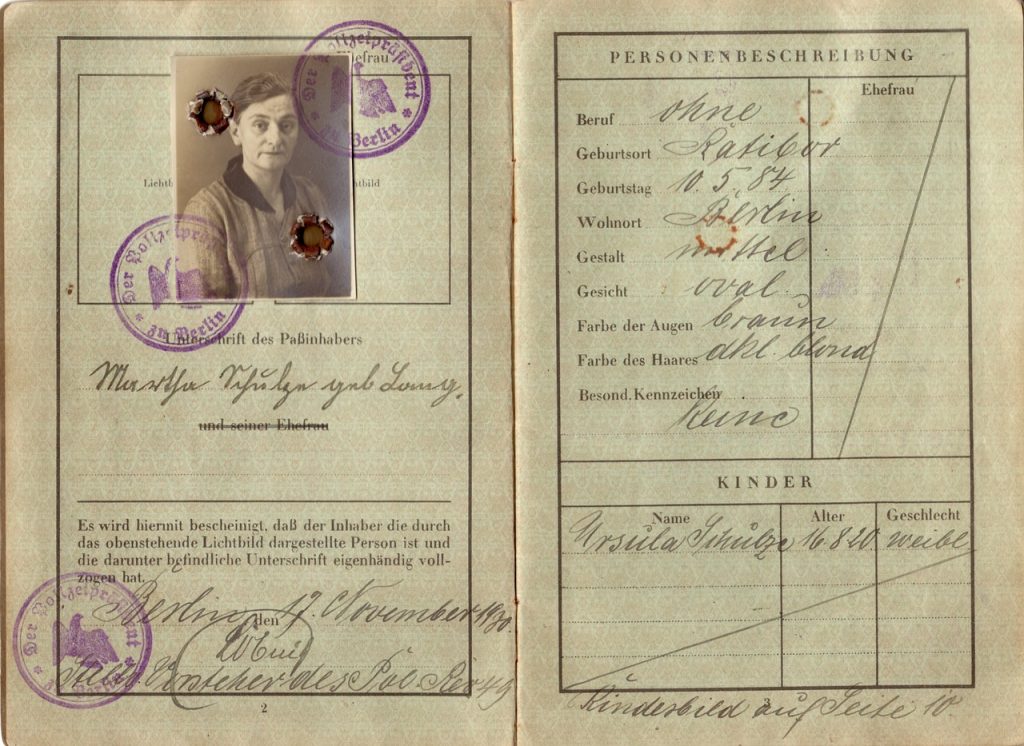 Ehefrau
Der Polizeipräsident
zu Berlin
Lichtb
htbild
Der Polizeipräsident
zu Berlin
Unterschrift des Paßinhabers
Martha Schulze geb Lang.
und seiner Ehefrau
Es wird hiermit bescheinigt, daß der Inhaber die durch
das obenstehende Lichtbild dargestellte Person ist und
die darunter befindliche Unterschrift eigenhändig voll-
zogen hat.
Berlin, den 17. November 1930.
des Pol. Rev 49
Der Polizeipräsident
zu Berlin
2
PERSONENBESCHREIBUNG
Ehefrau
Beruf ohne
Geburtsort Ratibor
Geburtstag 10. 5. 84
Wohnort Berlin
Gestalt mittel
Gesicht oval
Farbe der Augen braun
Farbe des Haares dkl. blond
Besond. Kennzeichen
Keine
KINDER
Name Alter Geschlecht
Ursula Schulze 16 8 20 weibl
Kindesbild auf Seite 10.